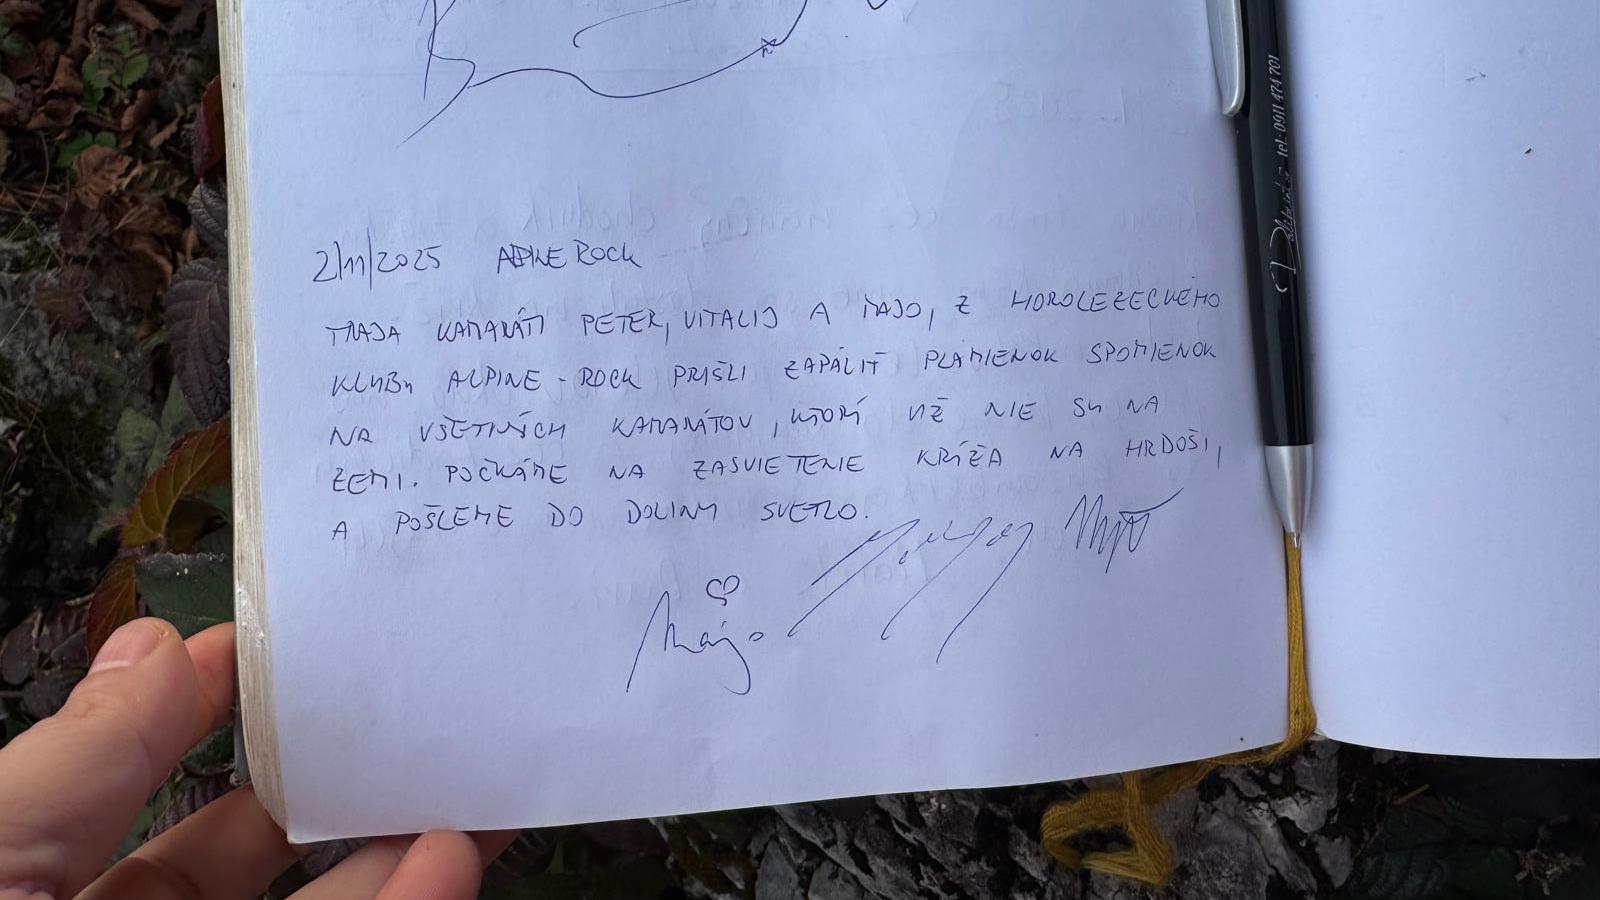 2/11/2025 ALPINE ROCK
TRAJA KAMARÁTI PETER, VITALIJ A MAJO, Z HOROLEZECKÉHO
KLUBU ALPINE-ROCK PRIŠLI ZAPÁLIŤ PLAMIENOK SPOMIENOK
NA VŠETKÝCH KAMARÁTOV, KTORÍ UŽ NIE SU NA
ZEMI. POČKÁME NA ZASVIETENIE KRÍŽA NA HRDOŠI,
A POŠLEME DO DOLINY SVETLO.
Majo
tel: 0911 474 701